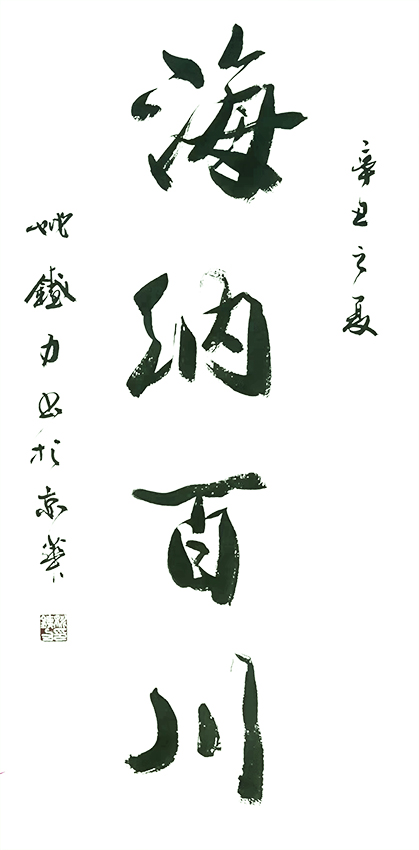 辛丑之夏
海纳百川
姚鐵力书於京華